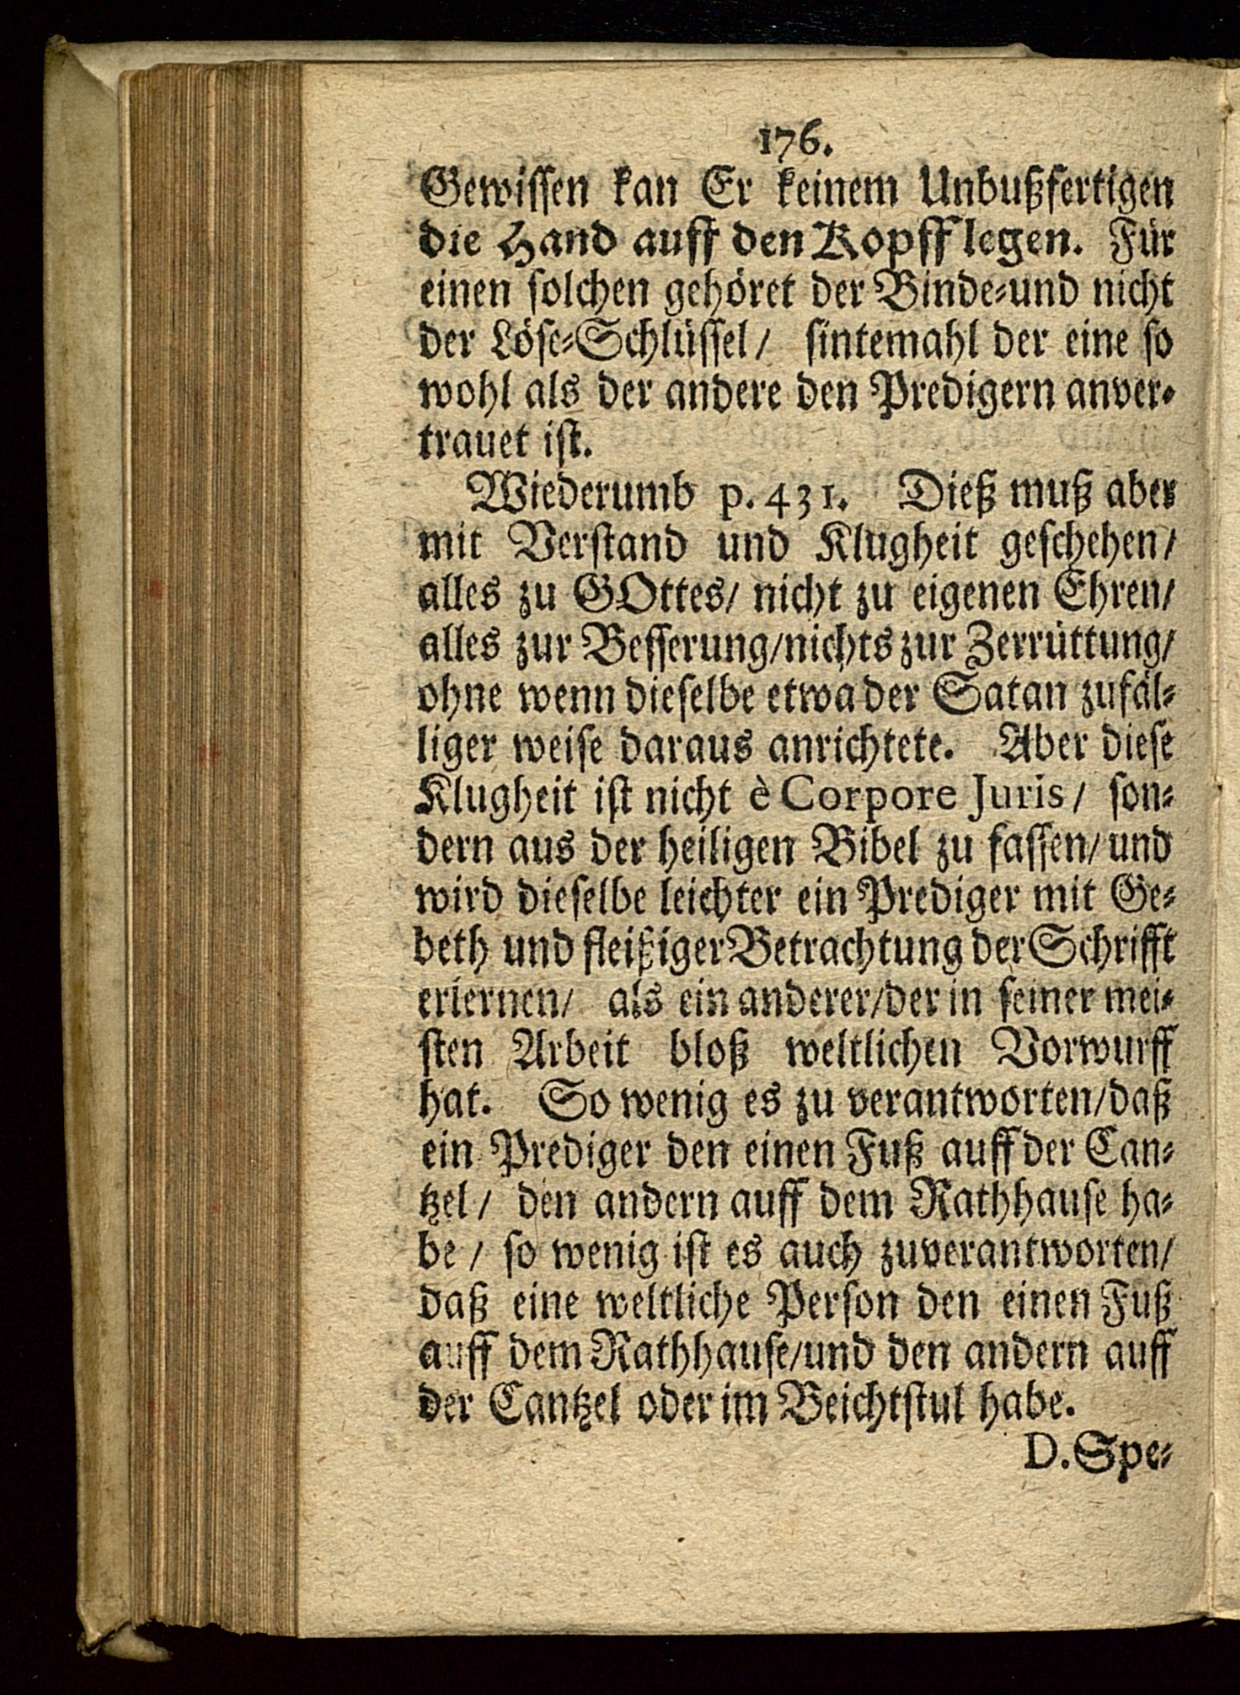 176.
Gewissen kan Er keinem Unbußfertigen
die Hand auff den Kopff legen. Für
einen solchen gehöret der Binde-und nicht
der Löse-Schlüssel/ sintemahl der eine so
wohl als der andere den Predigern anver-
trauet ist.
Wiederumb p. 431. Dieß muß aber
mit Verstand und Klugheit geschehen/
alles zu GOttes/ nicht zu eigenen Ehren/
alles zur Besserung/nichts zur Zerrüttung/
ohne wenn dieselbe etwa der Satan zufäl-
liger weise daraus anrichtete. Aber diese
Klugheit ist nicht è Corpore Juris/ son-
dern aus der heiligen Bibel zu fassen/und
wird dieselbe leichter ein Prediger mit Ge-
beth und fleißiger Betrachtung der Schrifft
erlernen/ als ein anderer/der in seiner mei-
sten Arbeit bloß weltlichen Vorwurff
hat. So wenig es zu verantworten/daß
ein Prediger den einen Fuß auff der Can-
tzel/ den andern auff dem Rathhause ha-
be/ so wenig ist es auch zuverantworten/
daß eine weltliche Person den einen Fuß
auff dem Rathhause/und den andern auff
der Cantzel oder im Beichtstul habe.
D. Spe-